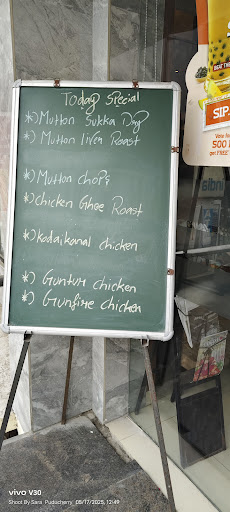 Today Special
*) Mutton Sukka Dry
*) Mutton liver Roast
*) Mutton chops
*) chicken Ghee Roast
*) kodaikanal chicken
*) Guntur chicken
*) Gunfire chicken
SIP
500
get FREE
vivo V30
Shoot By Sara Puducherry 05/17/2025, 12:49